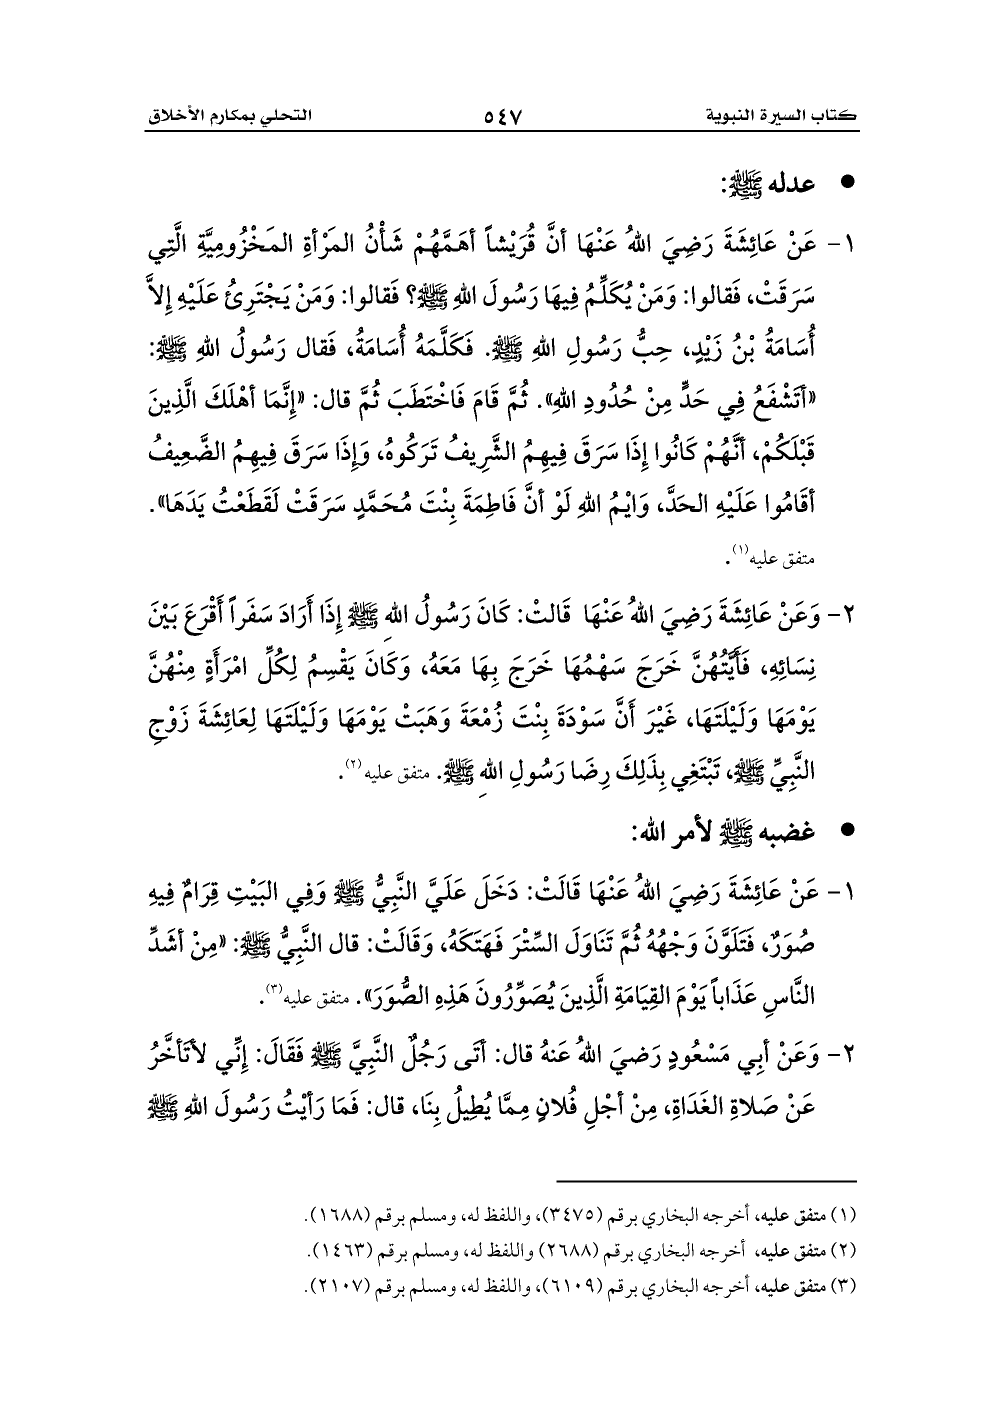 كتاب السيرة النبوية ٥٤٧ التحلي بمكارم الأخلاق
● عدله ﷺ:
١- عَنْ عَائِشَةَ رَضِيَ اللهُ عَنْهَا أنَّ قُرَيْشاً أهَمَّهُمْ شَأْنُ المَرْأةِ المَخْزُومِيَّةِ الَّتِي
سَرَقَتْ، فَقالوا: وَمَنْ يُكَلِّمُ فِيهَا رَسُولَ اللهِ ﷺ؟ فَقالوا: وَمَنْ يَجْتَرِئُ عَلَيْهِ إلاَّ
أُسَامَةُ بْنُ زَيْدٍ، حِبُّ رَسُولِ اللهِ ﷺ. فَكَلَّمَهُ أُسَامَةُ، فَقال رَسُولُ اللهِ ﷺ:
«أتَشْفَعُ فِي حَدٍّ مِنْ حُدُودِ اللهِ». ثُمَّ قَامَ فَاخْتَطَبَ ثُمَّ قال: «إنَّمَا أهْلَكَ الَّذِينَ
قَبْلَكُمْ، أنَّهُمْ كَانُوا إذَا سَرَقَ فِيهِمُ الشَّرِيفُ تَرَكُوهُ، وَإذَا سَرَقَ فِيهِمُ الضَّعِيفُ
أقَامُوا عَلَيْهِ الحَدَّ، وَايْمُ اللهِ لَوْ أنَّ فَاطِمَةَ بِنْتَ مُحَمَّدٍ سَرَقَتْ لَقَطَعْتُ يَدَهَا».
متفق عليه(١).
٢- وَعَنْ عَائِشَةَ رَضِيَ اللهُ عَنْهَا قَالتْ: كَانَ رَسُولُ اللهِ ﷺ إذَا أرَادَ سَفَراً أقْرَعَ بَيْنَ
نِسَائِهِ، فَأيَّتُهُنَّ خَرَجَ سَهْمُهَا خَرَجَ بِهَا مَعَهُ، وَكَانَ يَقْسِمُ لِكُلِّ امْرَأةٍ مِنْهُنَّ
يَوْمَهَا وَلَيْلَتَهَا، غَيْرَ أنَّ سَوْدَةَ بِنْتَ زُمْعَةَ وَهَبَتْ يَوْمَهَا وَلَيْلَتَهَا لِعَائِشَةَ زَوْجِ
النَّبِيِّ ﷺ، تَبْتَغِي بِذَلِكَ رِضَا رَسُولِ اللهِ ﷺ. متفق عليه(٢).
● غضبه ﷺ لأمر الله:
١- عَنْ عَائِشَةَ رَضِيَ اللهُ عَنْهَا قَالَتْ: دَخَلَ عَلَيَّ النَّبِيُّ ﷺ وَفِي البَيْتِ قِرَامٌ فِيهِ
صُوَرٌ، فَتَلَوَّنَ وَجْهُهُ ثُمَّ تَنَاوَلَ السِّتْرَ فَهَتَكَهُ، وَقَالَتْ: قال النَّبِيُّ ﷺ: «مِنْ أشَدِّ
النَّاسِ عَذَاباً يَوْمَ القِيَامَةِ الَّذِينَ يُصَوِّرُونَ هَذِهِ الصُّوَرَ». متفق عليه(٣).
٢- وَعَنْ أبِي مَسْعُودٍ رَضيَ اللهُ عَنهُ قال: أتَى رَجُلٌ النَّبِيَّ ﷺ فَقَالَ: إنِّي لأتَأخَّرُ
عَنْ صَلاةِ الغَدَاةِ، مِنْ أجْلِ فُلانٍ مِمَّا يُطِيلُ بِنَا، قال: فَمَا رَأيْتُ رَسُولَ اللهِ ﷺ
(١) متفق عليه، أخرجه البخاري برقم (٣٤٧٥)، واللفظ له، ومسلم برقم (١٦٨٨).
(٢) متفق عليه، أخرجه البخاري برقم (٢٦٨٨) واللفظ له، ومسلم برقم (١٤٦٣).
(٣) متفق عليه، أخرجه البخاري برقم (٦١٠٩)، واللفظ له، ومسلم برقم (٢١٠٧).